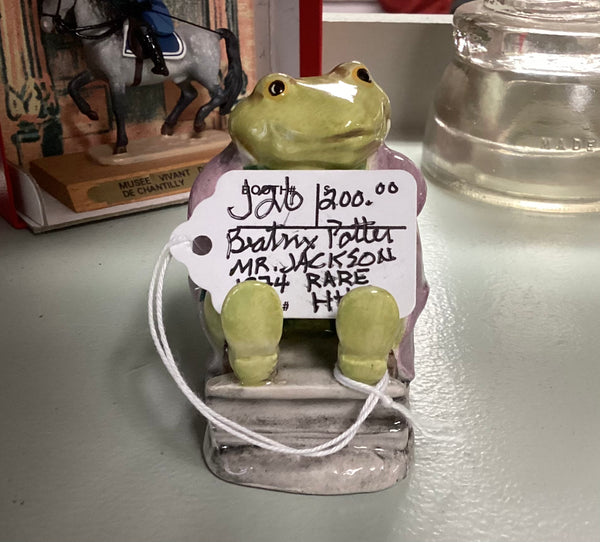 MUSEE VIVANT D
DE CHANTILLY
BOOTH#
J26 $200.00
Beatrix Potter
MR. JACKSON
1974 RARE
#
MADE